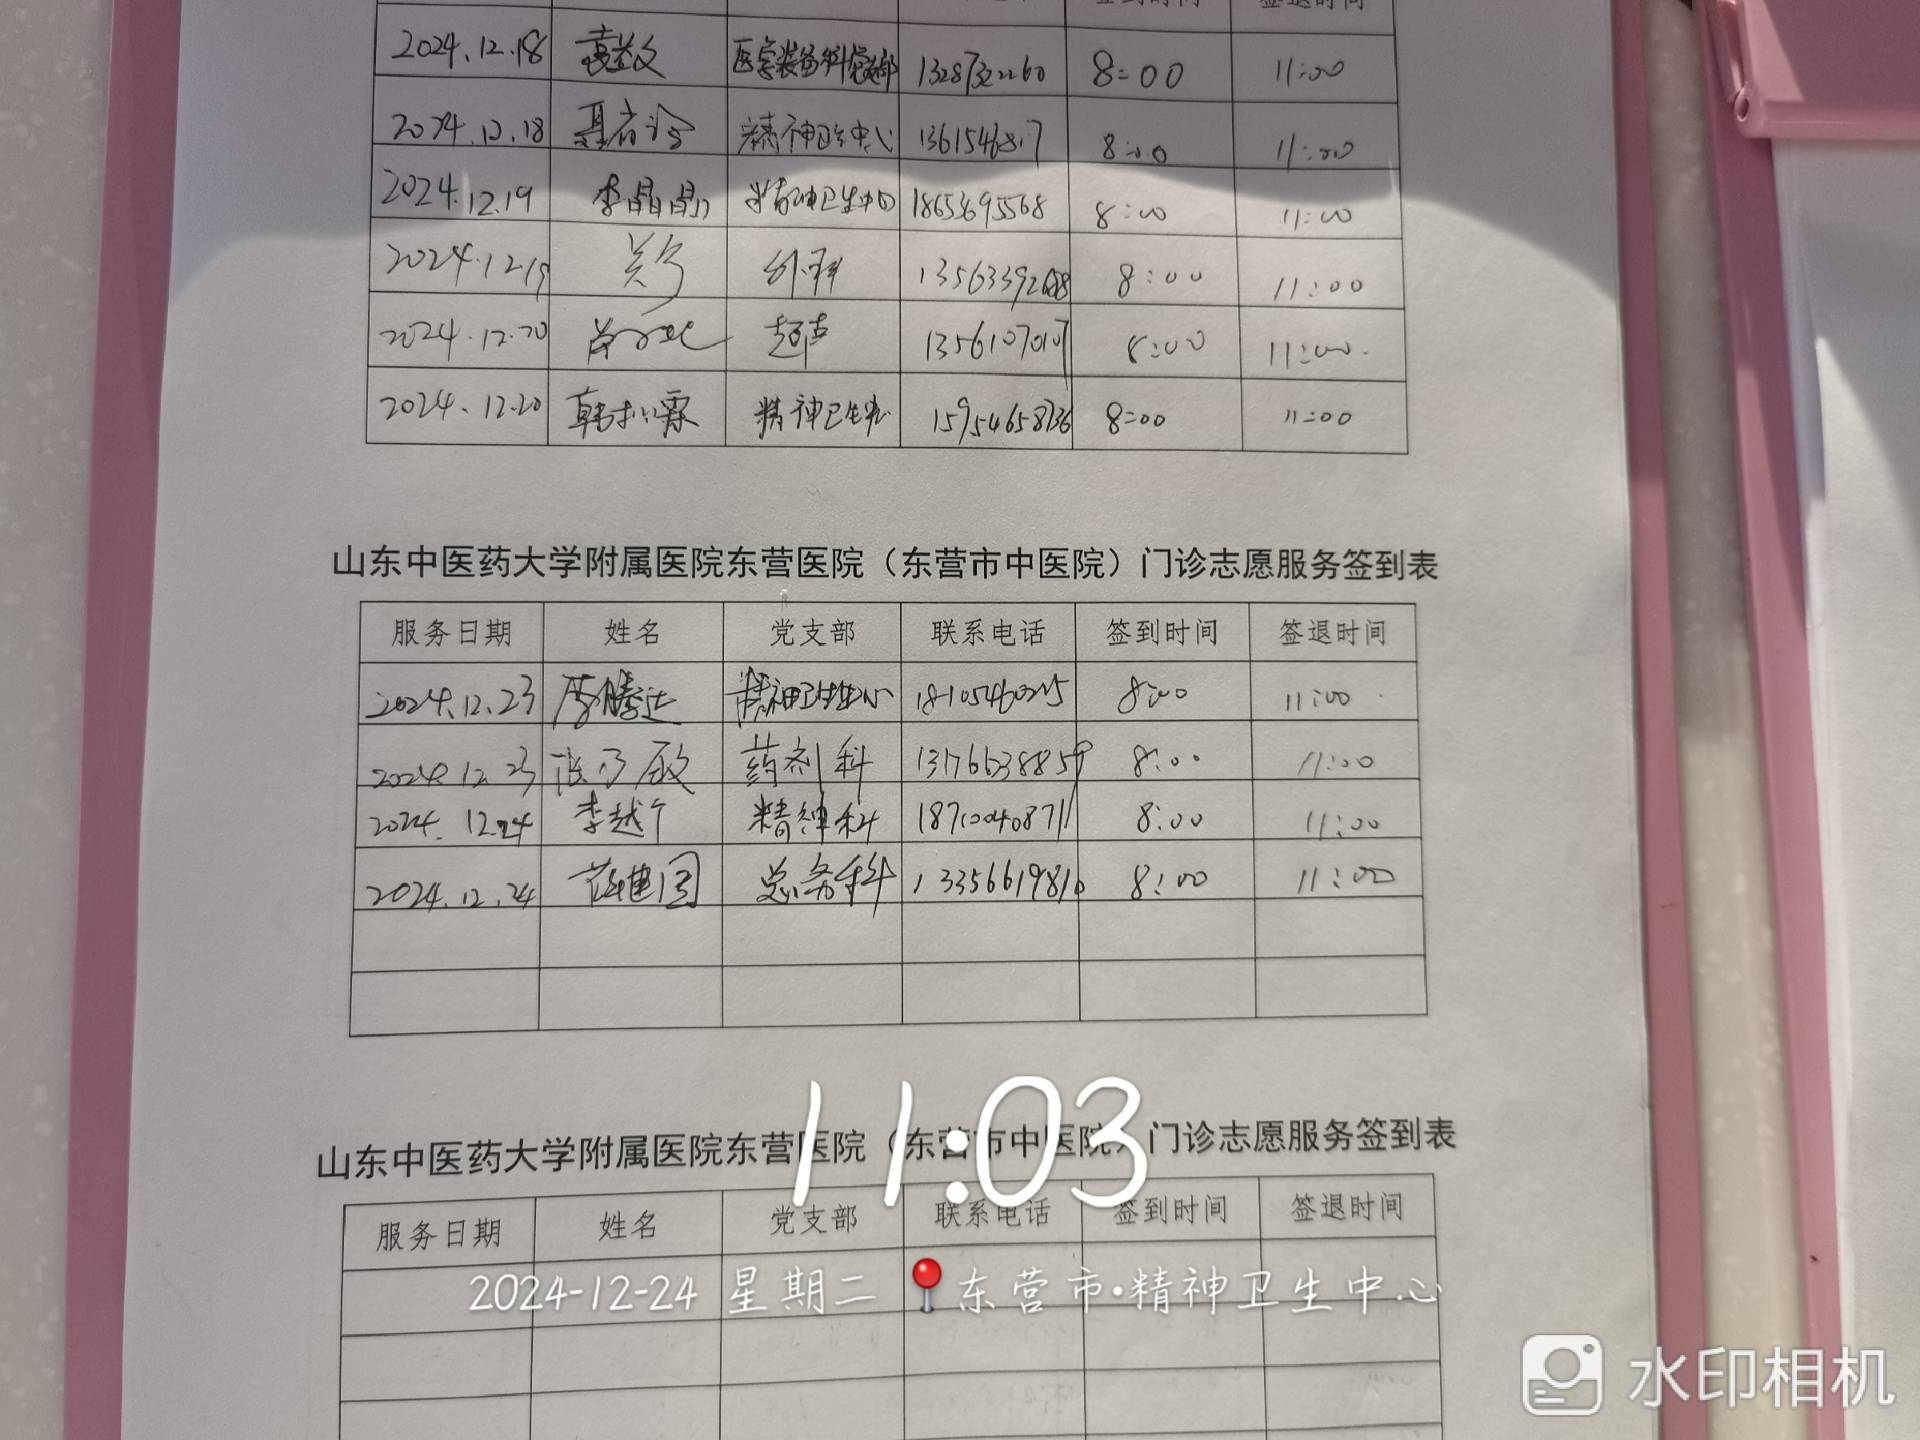 签到时间 签退时间
2024.12.18 医学装备科党支部 13287322260 8:00 11:00
2024.12.18 精神卫生中心 8:00 11:00
2024.12.19 李晶晶 精神卫生中心 18653695568 8:00 11:00
2024.12.19 外科 8:00 11:00
2024.12.20 超声 13561070107 8:00 11:00.
2024.12.20 精神卫生中心 15954658736 8:00 11:00
山东中医药大学附属医院东营医院（东营市中医院）门诊志愿服务签到表
服务日期 姓名 党支部 联系电话 签到时间 签退时间
2024.12.23 李腾达 精神卫生中心 18105460215 8:00 11:00
2024.12.23 药剂科 13176638859 8:00 11:00
2024.12.24 李越 精神科 18710040871 8:00 11:00
2024.12.24 范建国 总务科 13356619810 8:00 11:00
11:03
山东中医药大学附属医院东营医院（东营市中医院）门诊志愿服务签到表
服务日期 姓名 党支部 联系电话 签到时间 签退时间
2024-12-24 星期二 东营市·精神卫生中心
水印相机